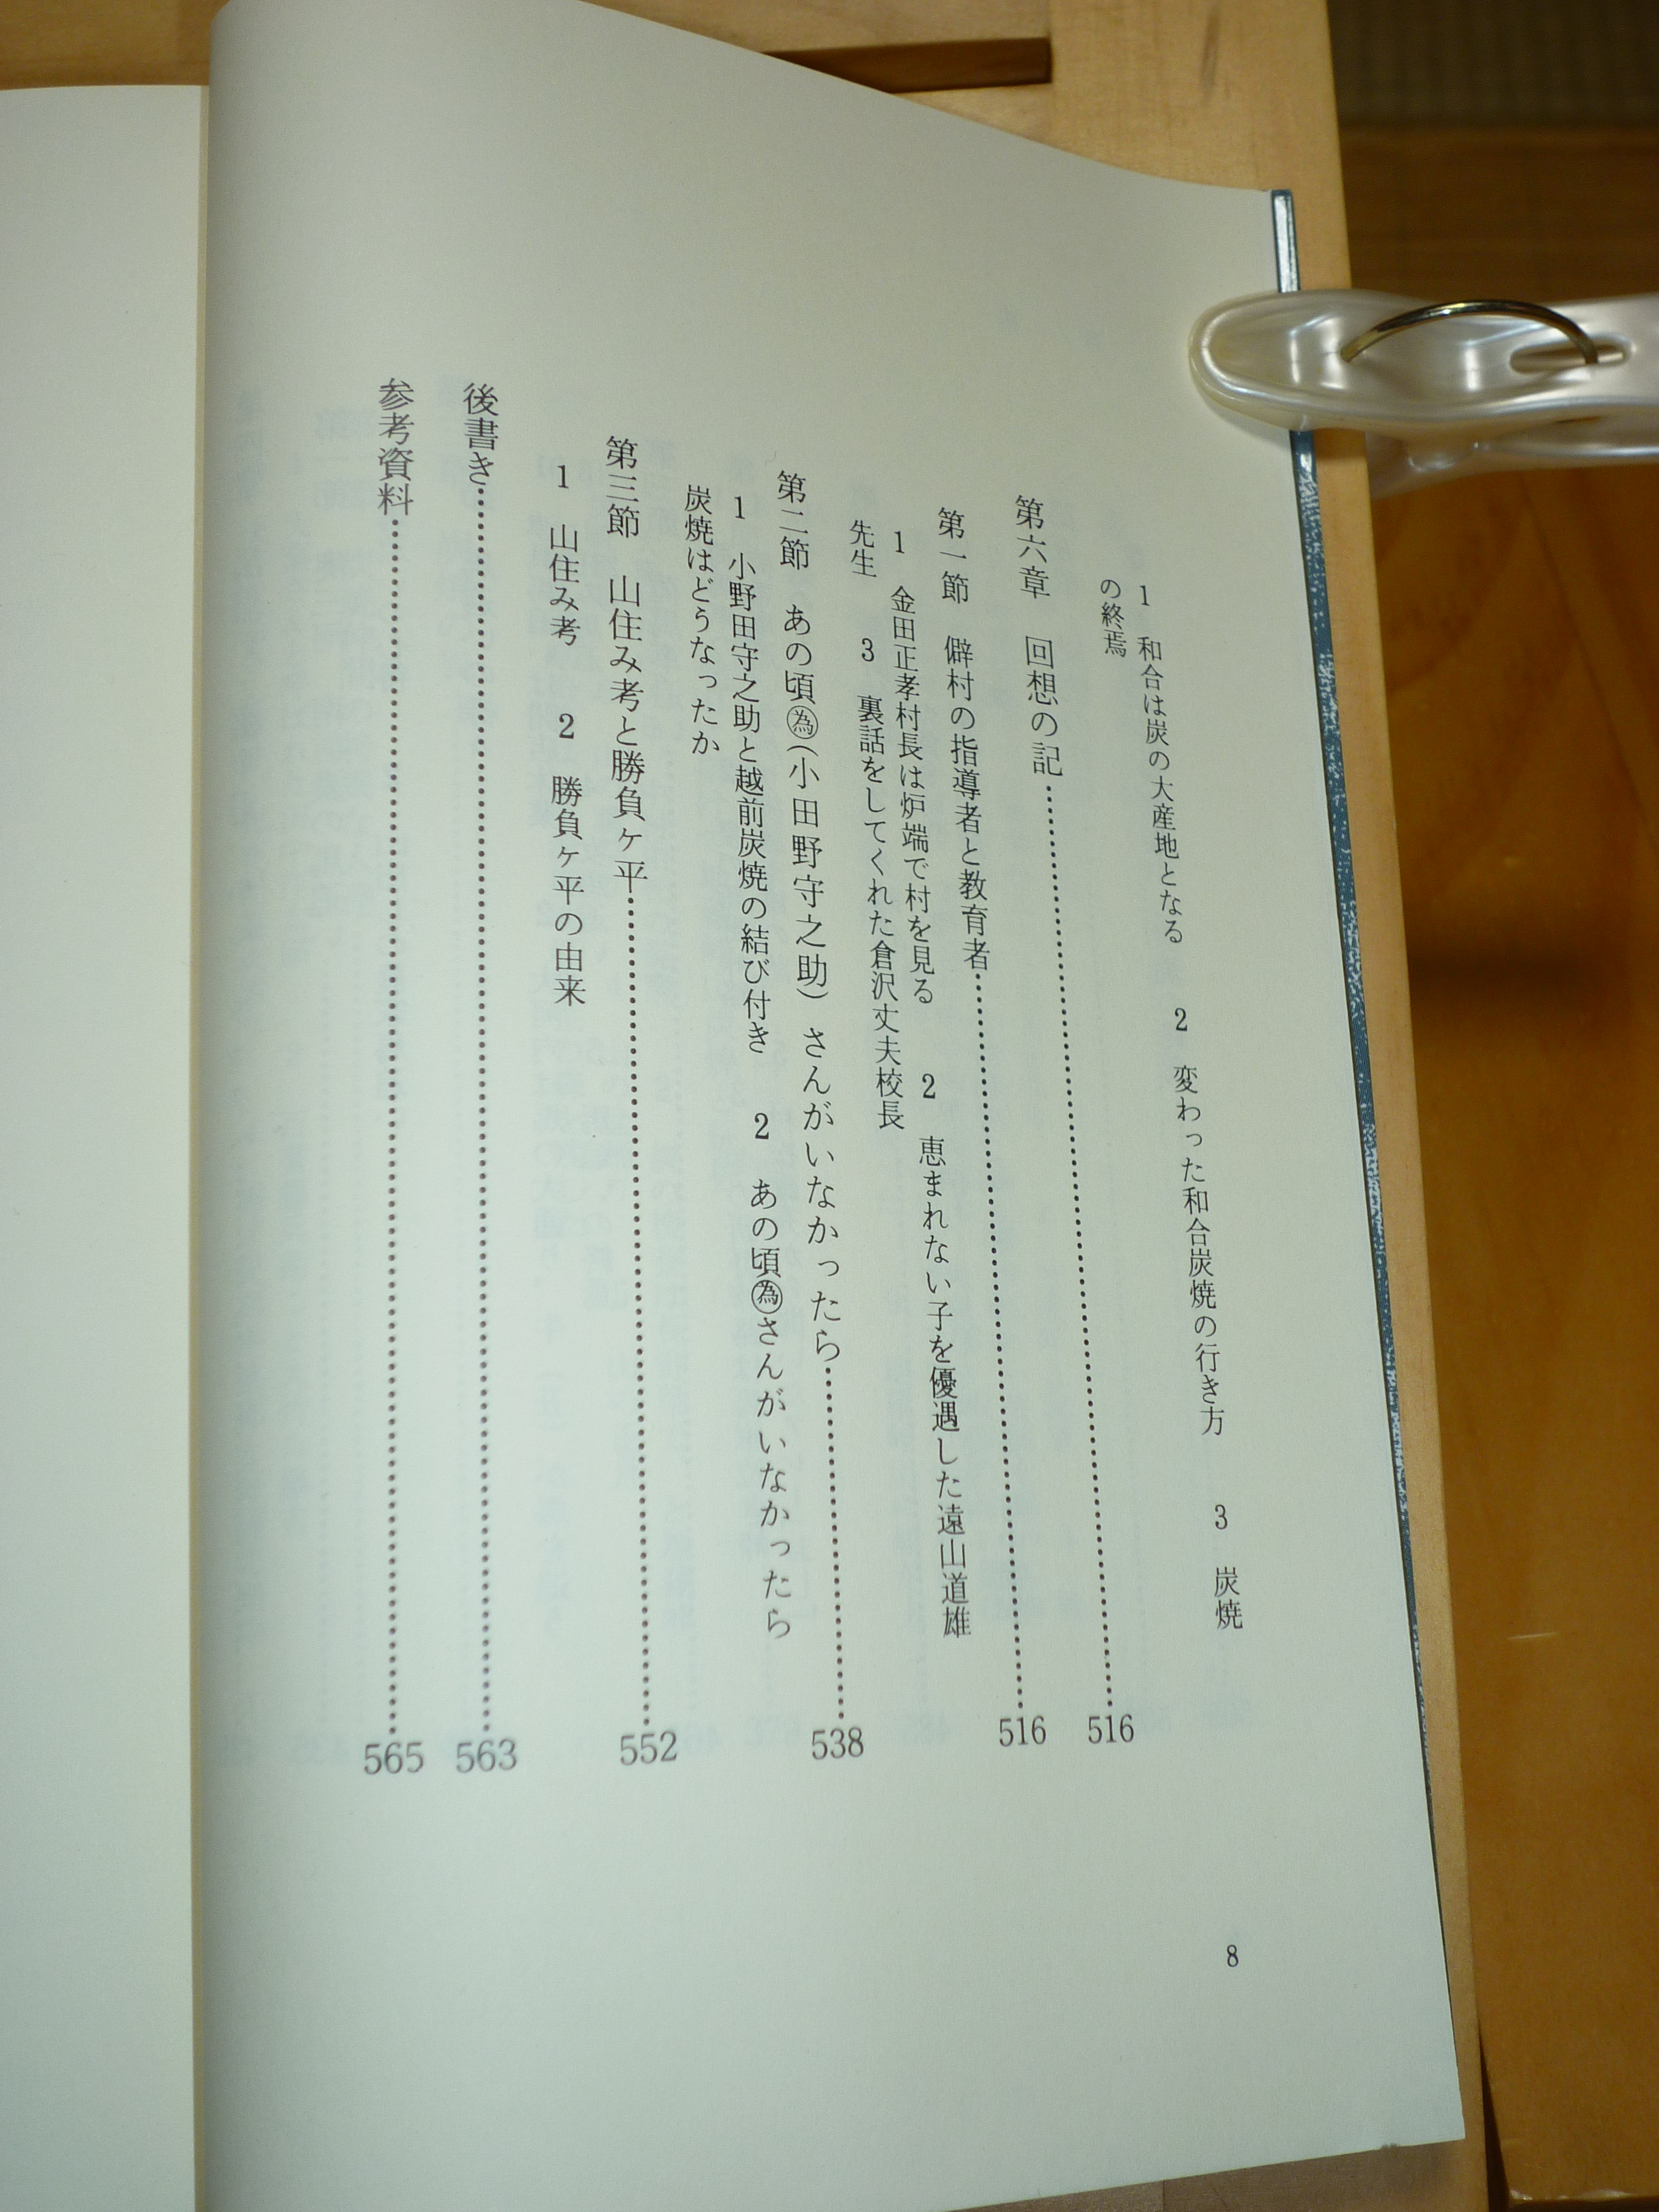 1　和合は炭の大産地となる　2　変わった和合炭焼の行き方　3　炭焼
の終焉
第六章　回想の記……516
第一節　僻村の指導者と教育者……516
1　金田正孝村長は炉端で村を見る　2　恵まれない子を優遇した遠山道雄
先生　3　裏話をしてくれた倉沢丈夫校長
第二節　あの頃㊝(小田野守之助)さんがいなかったら……538
1　小野田守之助と越前炭焼の結び付き　2　あの頃さんがいなかったら
炭焼はどうなったか
第三節　山住み考と勝負ヶ平……552
1　山住み考　2　勝負ヶ平の由来
後書き……563
参考資料……565
8